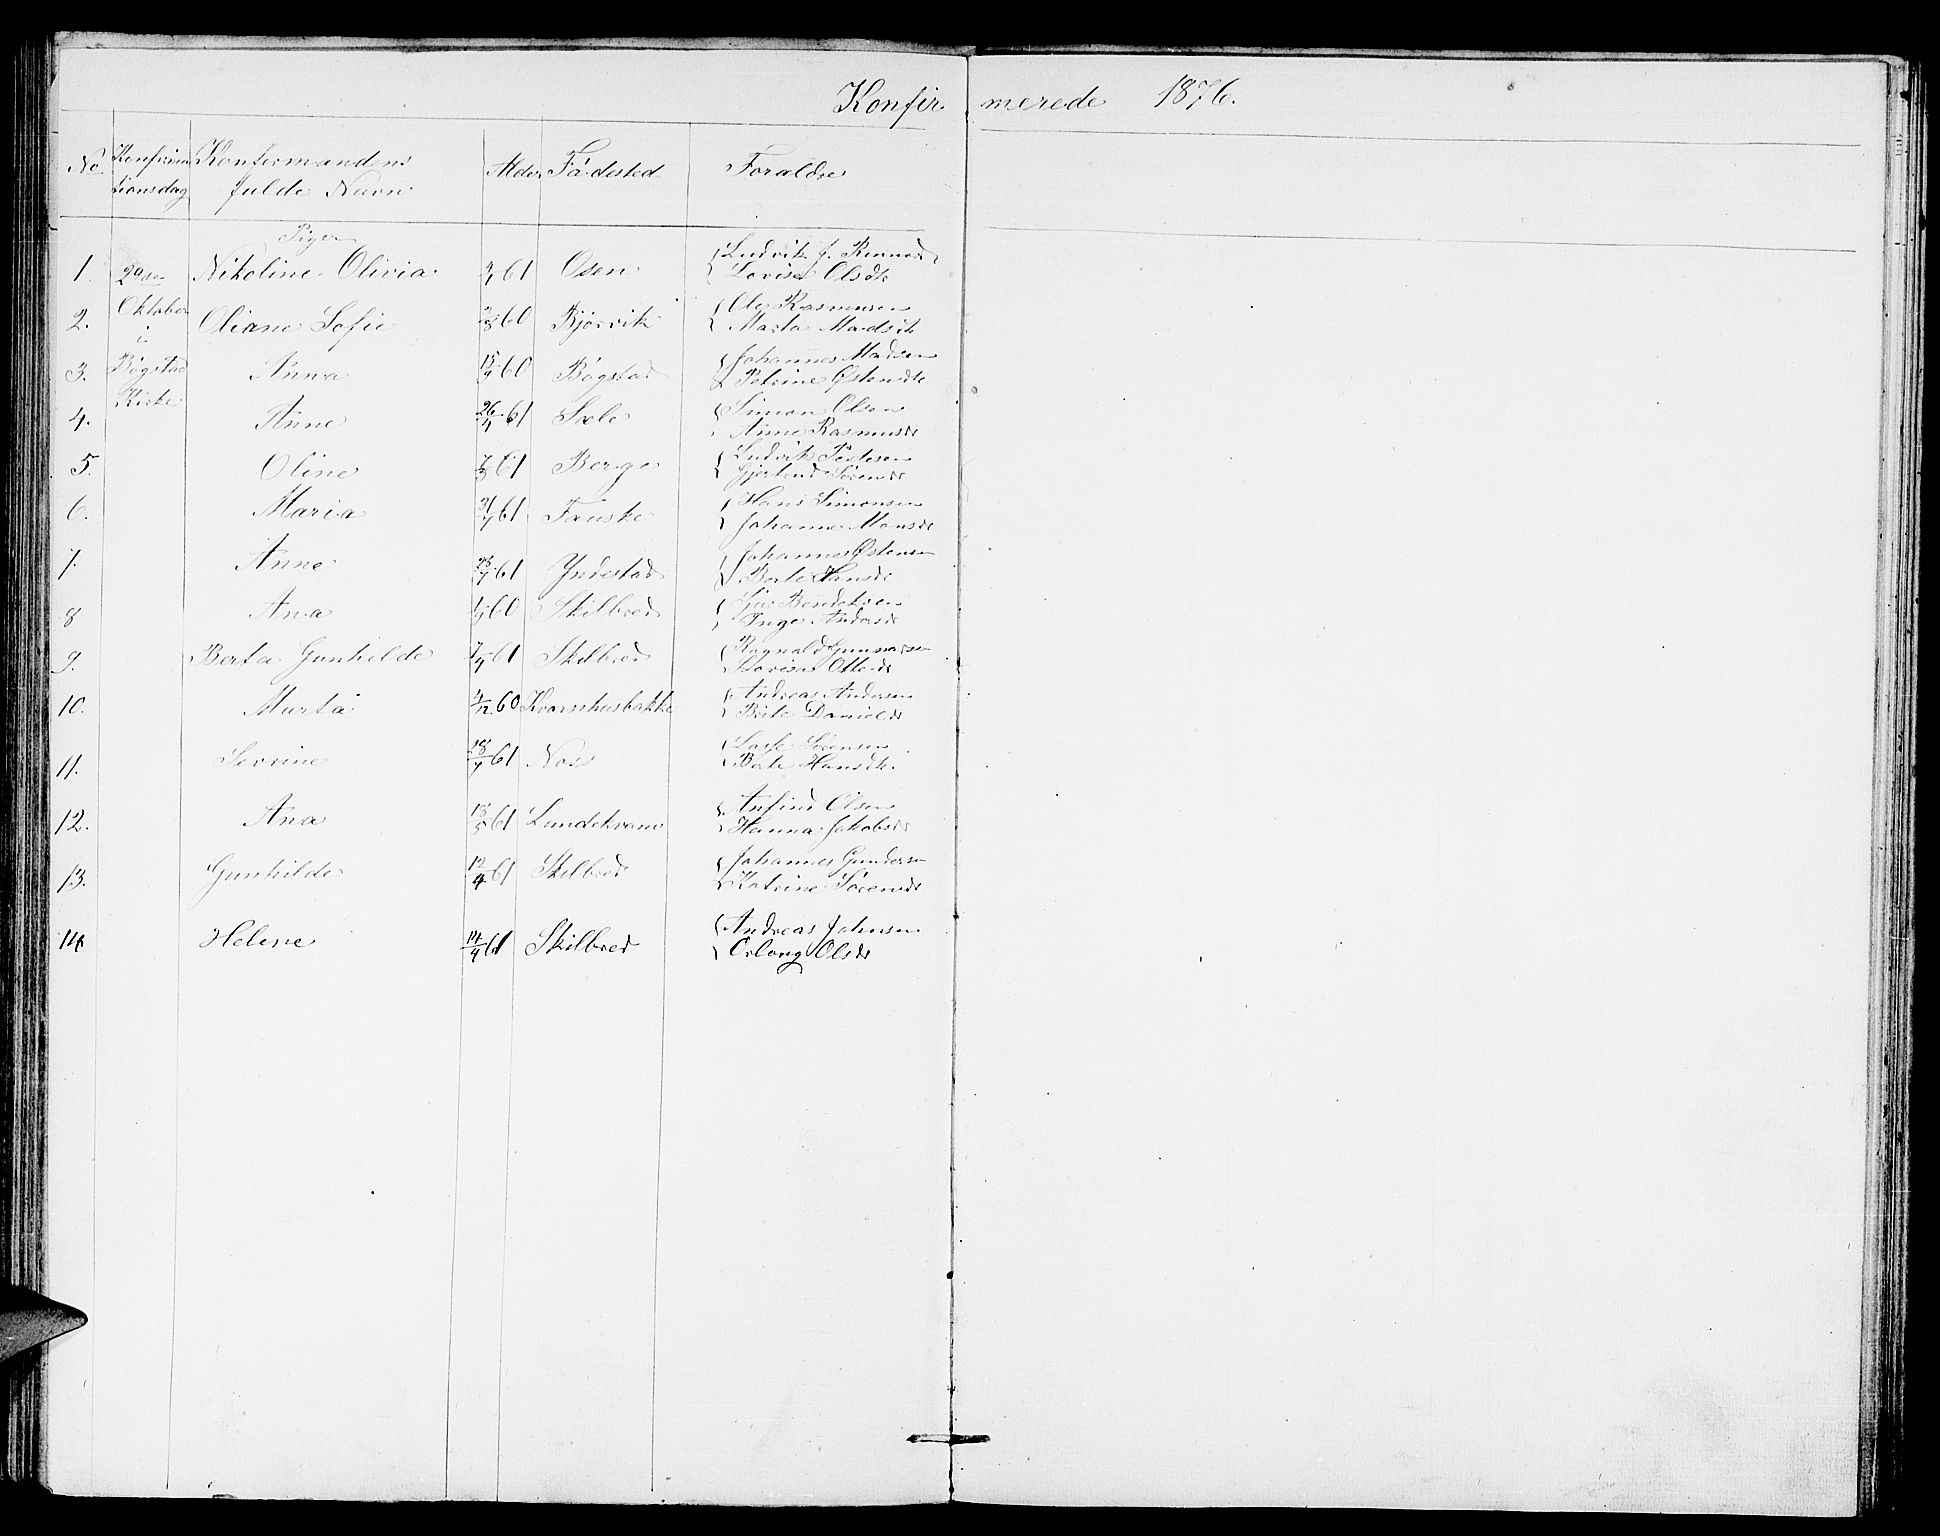 Konfirmerede 1876.
No Konfirmationsdag Konfirmandens fulde Navn Alder Fødested Forældre
Piger
1. 29de Nikoline Olivia 61 Osen Ludvik J.
Lovise Olsdtr
2. Oktober Oliane Sofie 60 Bjørvik Ole Rasmusen
i Marta Madsdtr
3. Bøgstad Anna 15/9 60 Bøgstad Johannes Madsen
Kirke Petrine Østensdtr
4. Anne 26/4 61 Sæle Simon Olsen
Anne Rasmusdr
5. Oline 61 Berge Ludvik Pedersen
Gjertrud Sørensdr
6. Maria 61 Fauske Hans Simonsen
Johanne Monsdr
7. Anne 61 Yndestad Johannes Østensen
Berte Hansdr
8 Ana 60 Skilbred Bendiksen
Inge Andersdr
9. Berta Gunhilde 61 Skilbred Ragnald Gunnarsen
Lovise Ottesdr
10. Marta 4/12 60 Kvarnhusbakke Andreas Andersen
Brite Danielsdr
11. Sevrine 61 Nos Lasse Sørensen
Berte Hansdtr.
12. Ana 18/5 61 Lundekvam Anfind Olsen
Hanna Jakobsdr
13. Gunhilde 12/4 61 Skilbred Johannes Gundersen
Katrine Sørensdr
14 Helene 61 Skilbred Andreas Johnsen
Olsdr